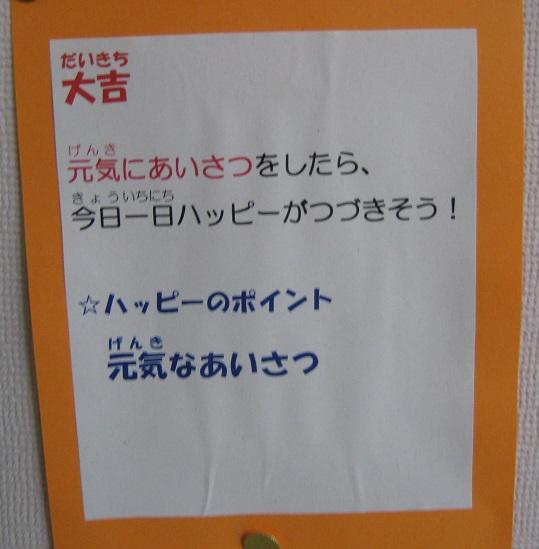 だいきち
大吉
げんき
元気にあいさつをしたら、
きょういちにち
今日一日ハッピーがつづきそう！
☆ハッピーのポイント
げんき
元気なあいさつ